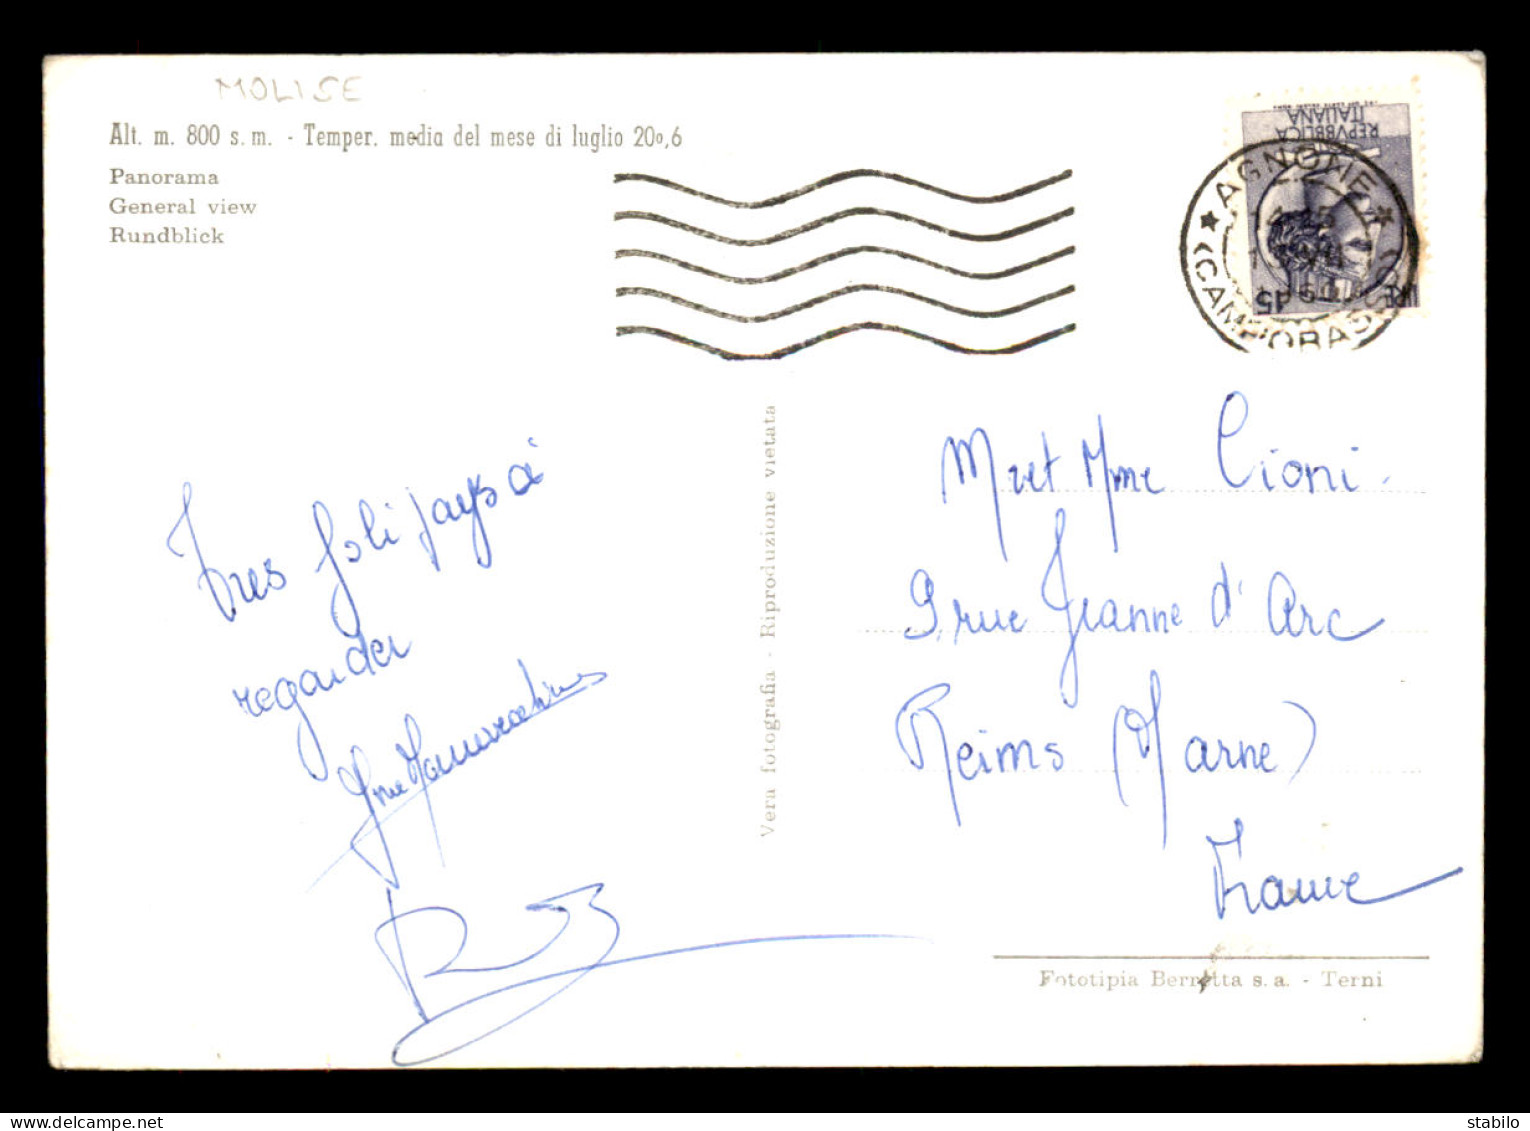 MOLISE
Alt. m. 800 s. m. - Temper. media del mese di luglio 20º,6
Panorama
General view
Rundblick
REPVBBLICA
ITALIANA
LIRE 45
AGNONE
(CAMPOBASSO)
Tres joli pays à
regarder
Vera fotografia - Riproduzione vietata
Mr et Mme Cioni
9 rue Jeanne d'Arc
Reims (Marne)
France
Fototipia Berretta s. a. - Terni
www.delcampe.net
stabilo